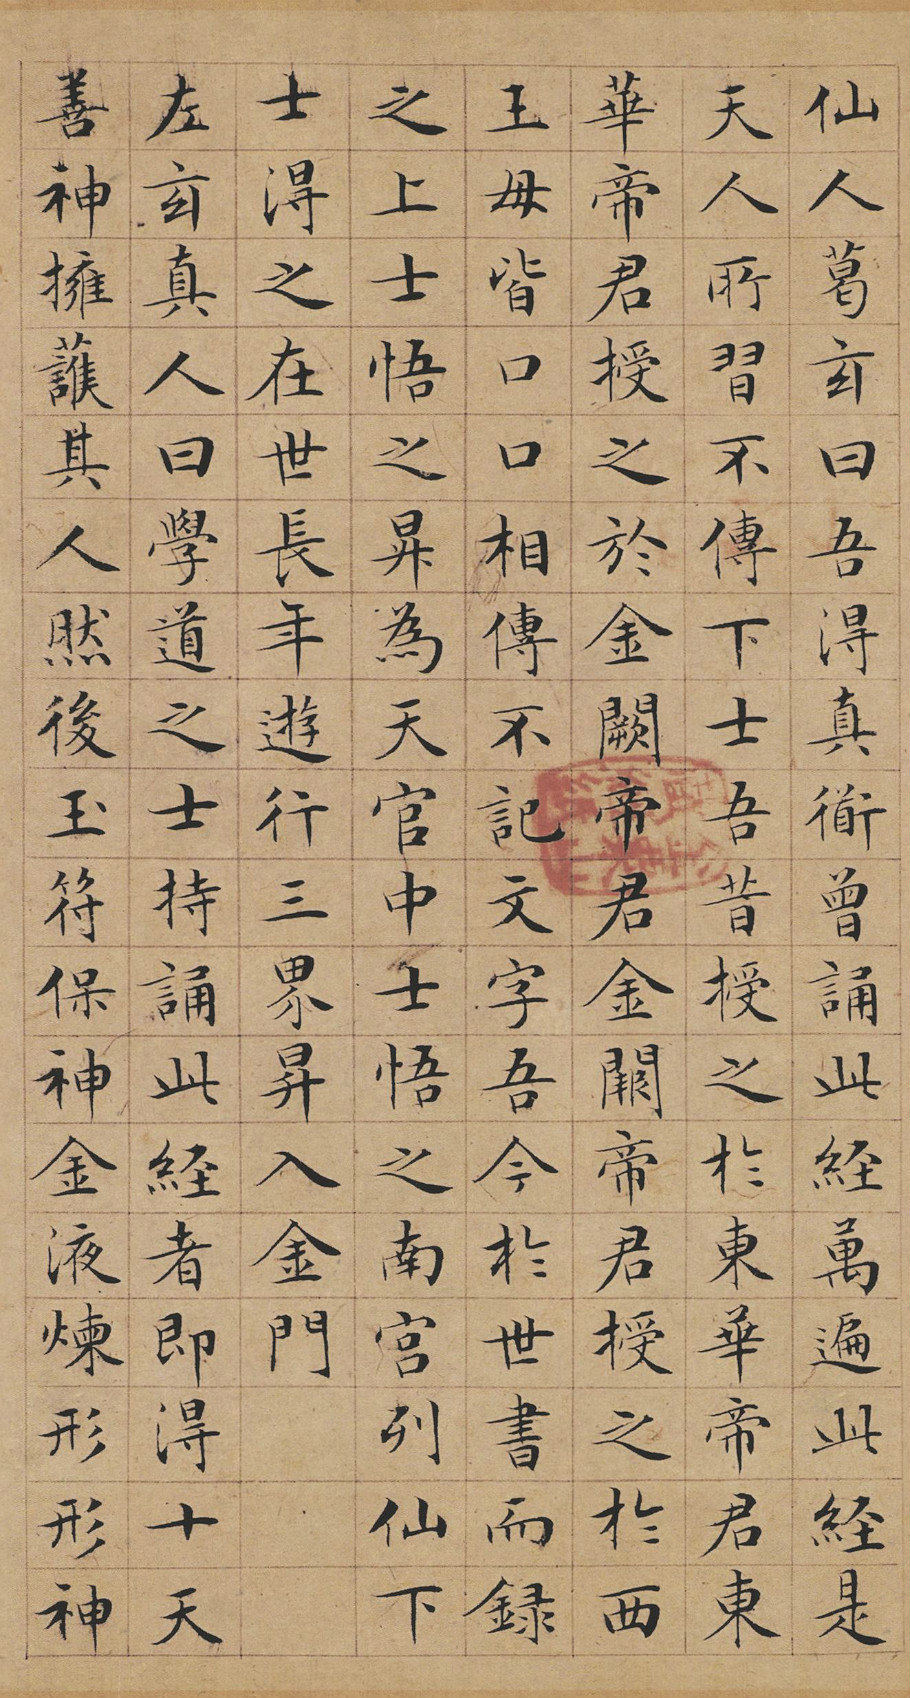 仙人葛玄曰吾得真衜曾誦此経萬遍此経是
天人所習不傳下士吾昔授之扵東華帝君東
華帝君授之於金闕帝君金闕帝君授之扵西
王母皆口口相傳不記文字吾今扵世書而録
之上士悟之昇為天官中士悟之南宫列仙下
士得之在世長年遊行三界昇入金門
左玄真人曰學道之士持誦此経者即得十天
善神擁護其人然後玉符保神金液煉形形神